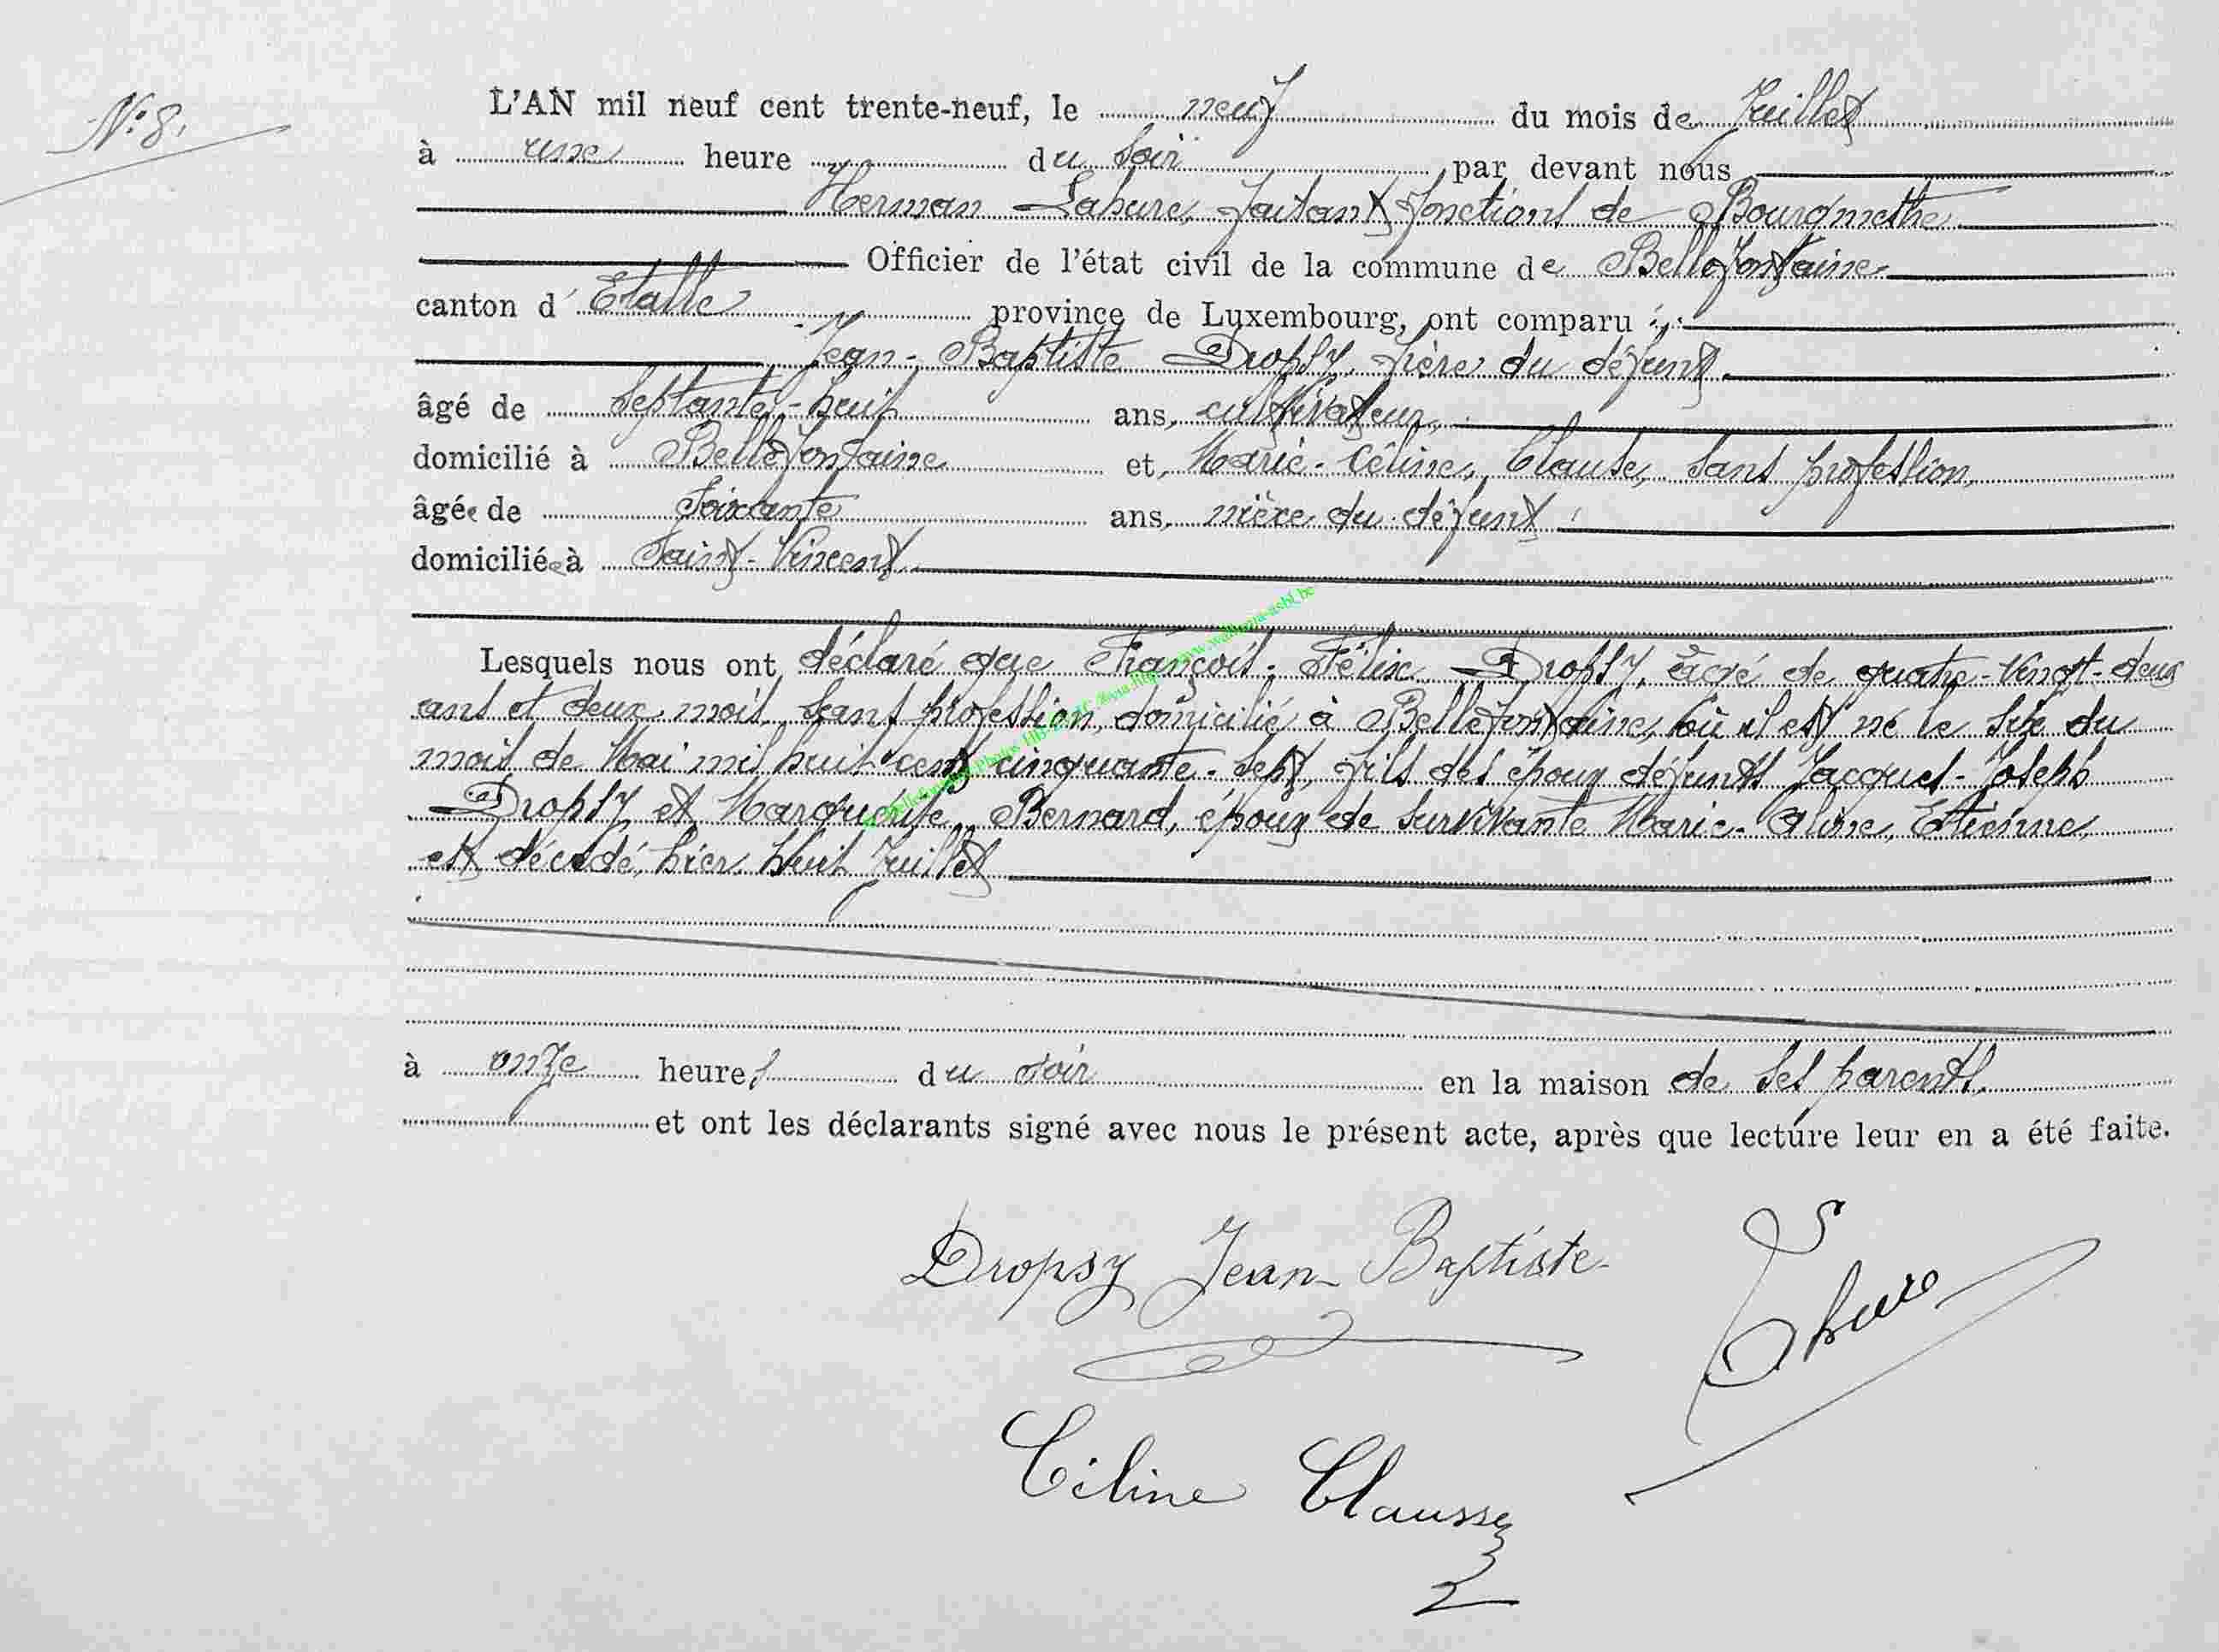 N° 8.
L'AN mil neuf cent trente-neuf, le neuf du mois de Juillet
à une heure du soir par devant nous
Herman Lahure, faisant fonctions de Bourgmestre
Officier de l'état civil de la commune de Bellefontaine
canton d'Etalle province de Luxembourg, ont comparu :
Jean-Baptiste Dropsy, frère du défunt
âgé de septante-huit ans, cultivateur,
domicilié à Bellefontaine et, Marie-Céline, Clause, sans profession,
âgée de soixante ans, nièce du défunt
domiciliée à Saint-Vincent
Lesquels nous ont déclaré que François-Félix Dropsy, âgé de quatre-vingt-deux
ans et deux mois, sans profession, domicilié à Bellefontaine, où il est né le six du
mois de Mai mil huit cent cinquante-sept, fils des époux défunts Jacques-Joseph
Dropsy et Marguerite Bernard, époux de survivante Marie-Aline, Etienne,
est décédé, hier huit Juillet
à onze heures du soir en la maison de ses parents.
et ont les déclarants signé avec nous le présent acte, après que lecture leur en a été faite.
Dropsy Jean-Baptiste
Lahure
Céline Clausse